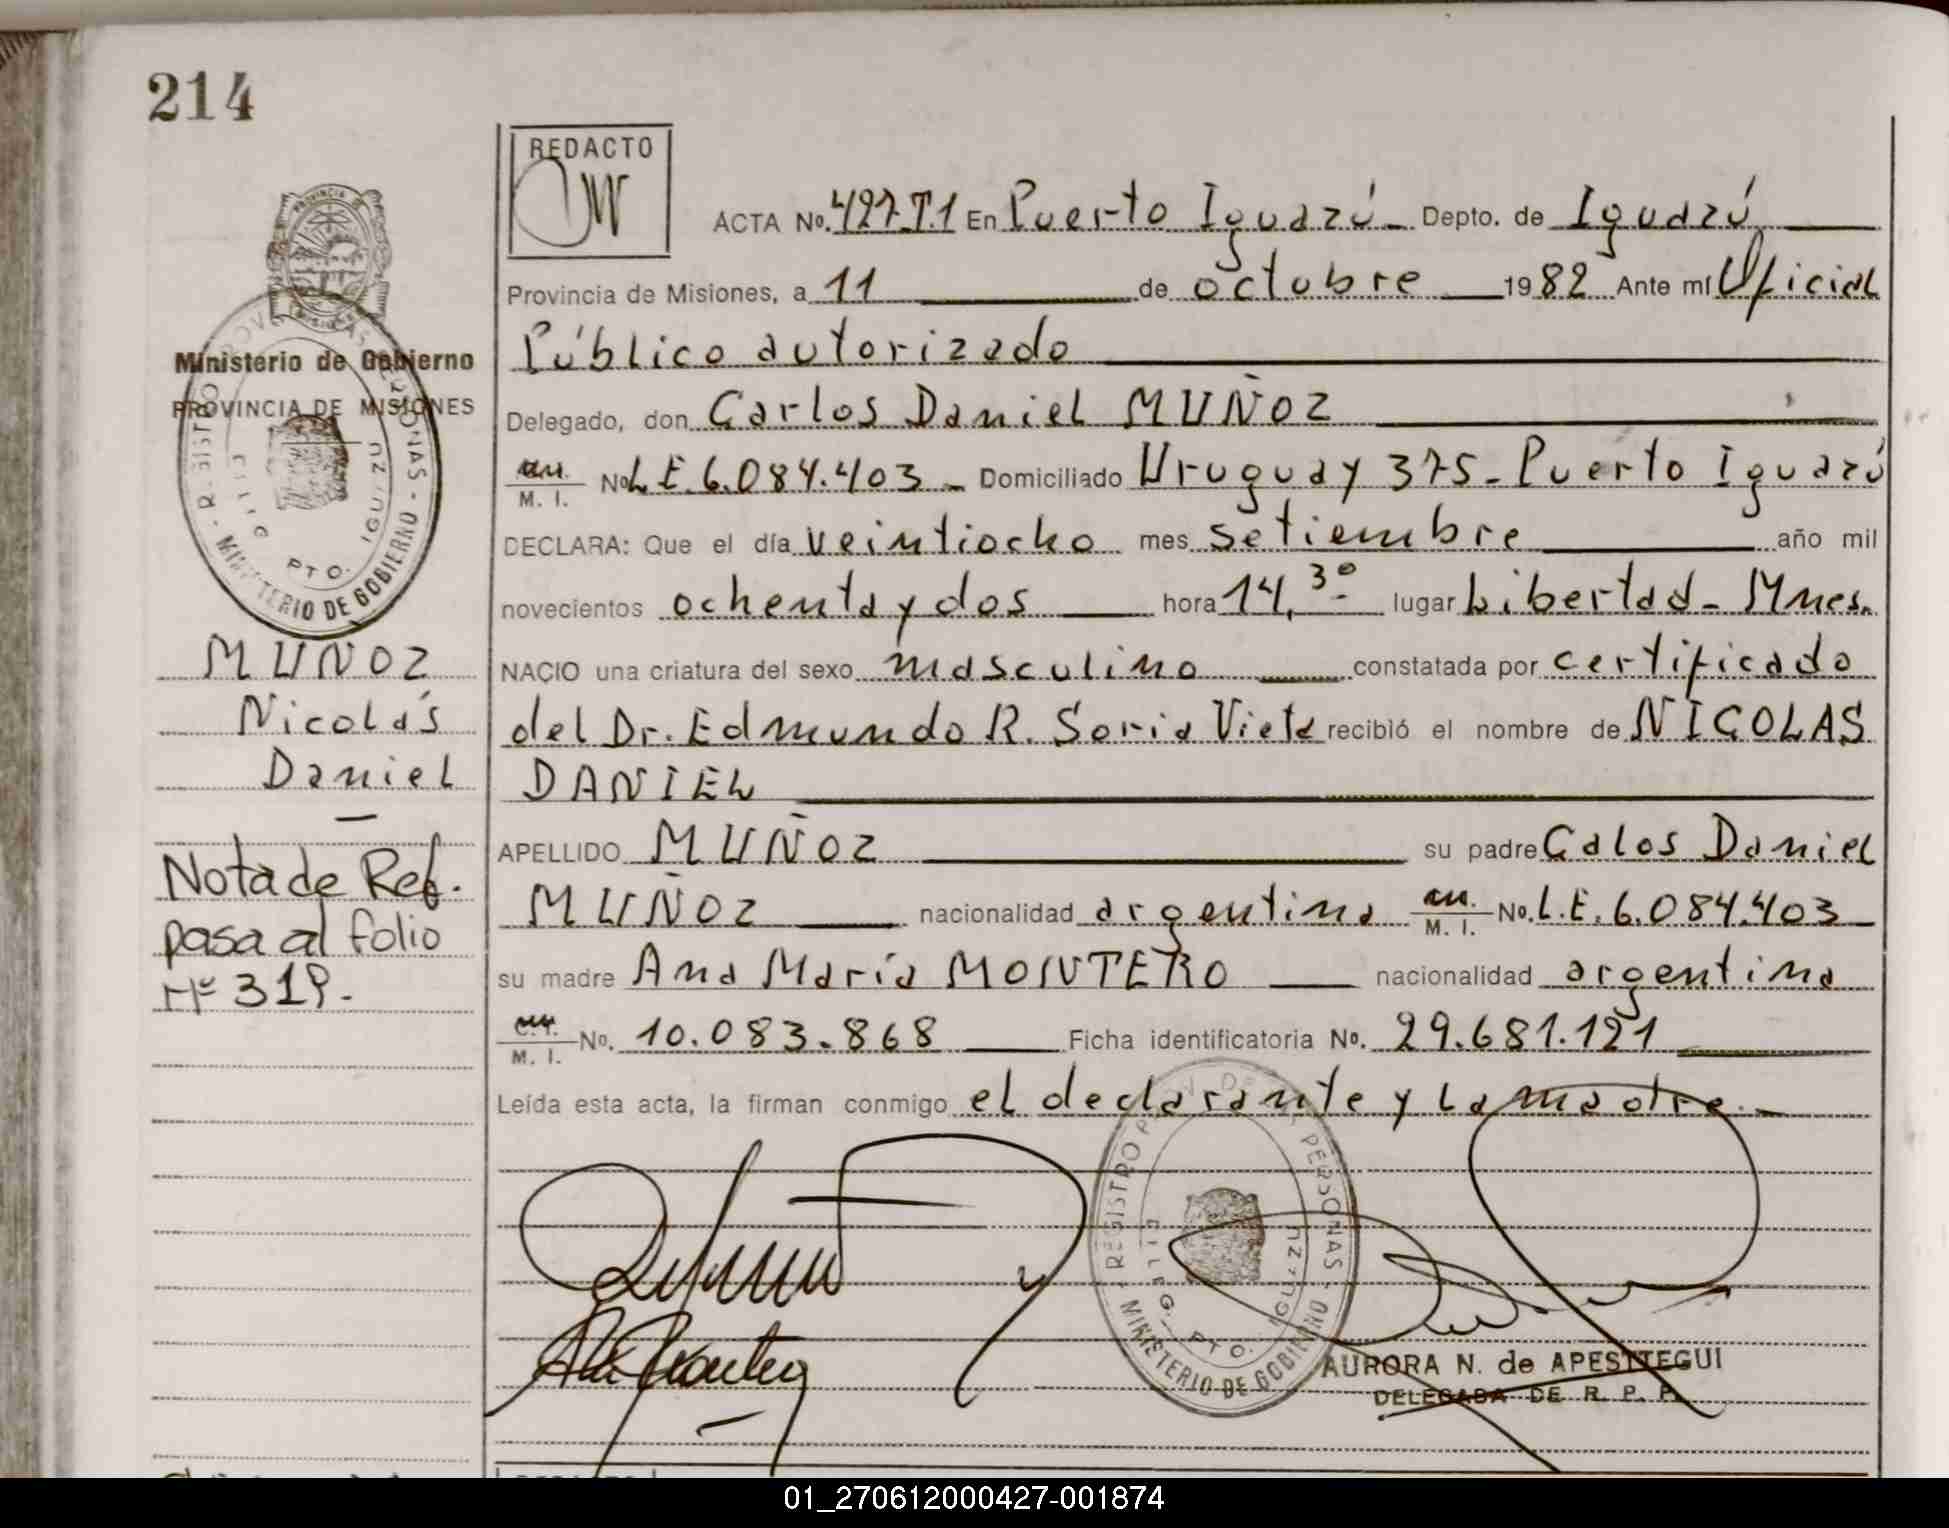 214
REDACTO
ACTA No. 427 T.1 En Puerto Iguazú - Depto. de Iguazú
Provincia de Misiones, a 11 de octubre 1982 Ante mí Oficial
Público autorizado
Delegado, don Carlos Daniel MUÑOZ
M. I. No. L.E. 6.084.403 - Domiciliado Uruguay 375 - Puerto Iguazú
DECLARA: Que el día veintiocho mes setiembre año mil
novecientos ochenta y dos hora 14,30 lugar Libertad - Mnes.
NACIO una criatura del sexo masculino constatada por certificado
del Dr. Edmundo R. Soria Vieta recibió el nombre de NICOLAS
DANIEL
APELLIDO MUÑOZ su padre Calos Daniel
MUÑOZ nacionalidad argentina M. I. No. L.E. 6.084.403
su madre Ana María MONTERO nacionalidad argentina
M. I. No. 10.083.868 Ficha identificatoria No. 29.681.121
Leída esta acta, la firman conmigo el declarante y la madre.-
Ministerio de Gobierno
PROVINCIA DE MISIONES
MINISTERIO DE GOBIERNO
PTO. IGUAZU
MUÑOZ
Nicolás
Daniel
Nota de Ref.
pasa al folio
Nº 319.-
REGISTRO PROV. DE LAS PERSONAS - MINISTERIO DE GOBIERNO
PTO. IGUAZU
AURORA N. de APESTTEGUI
DELEGADA DE R. P. P.
01_270612000427-001874